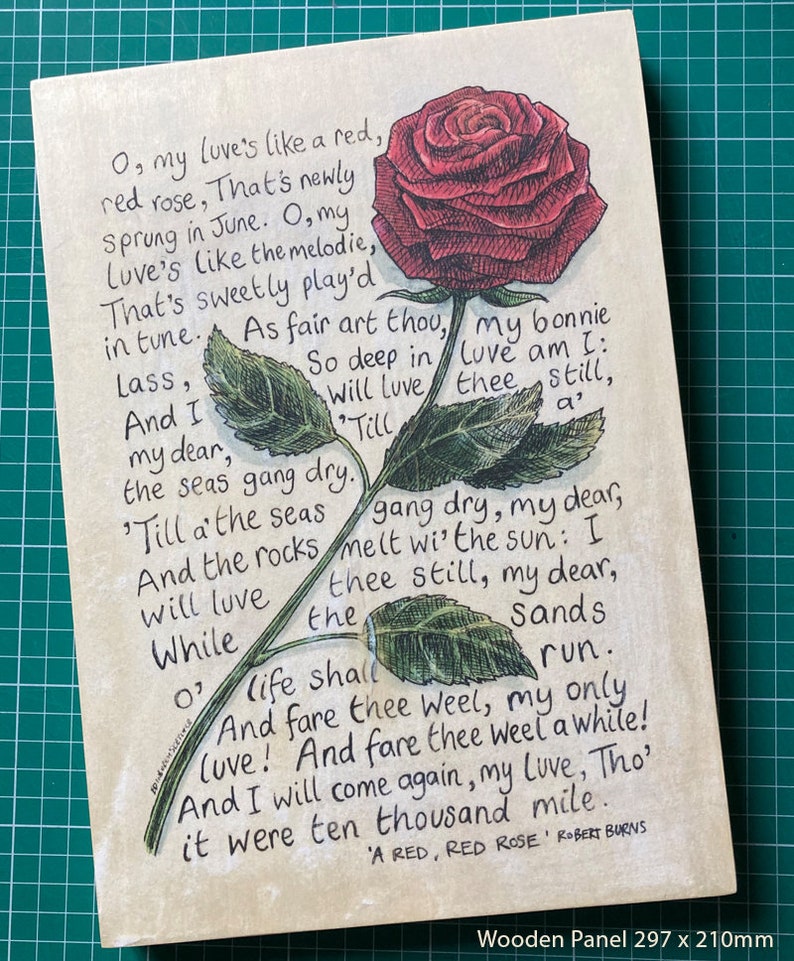 O, my luve's like a red,
red rose, That's newly
sprung in June. O, my
luve's like the melodie,
That's sweetly play'd
in tune. As fair art thou, my bonnie
lass, So deep in luve am I:
And I will luve thee still,
my dear, 'Till a'
the seas gang dry.
'Till a' the seas gang dry, my dear,
And the rocks melt wi' the sun: I
will luve thee still, my dear,
While the sands
o' life shall run.
And fare thee weel, my only
luve! And fare thee weel awhile!
And I will come again, my luve, Tho'
it were ten thousand mile.
'A RED, RED ROSE' ROBERT BURNS
Wooden Panel 297 x 210mm